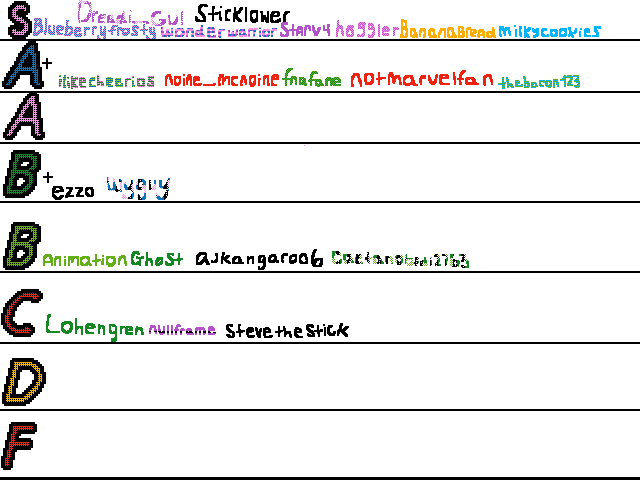 S Dreadi_Gul Sticklower
Blueberryfrosty wonderwarrior Starv4 hoggler BananaBread milkycookies
A+
ilikechearios noine_mcnoine fnafane notmarvelfan thebacon123
A
B+ ezzo wyguy
B Animation Ghost ajkangaroo6
C Lohengren nullframe Stevethestick
D
F